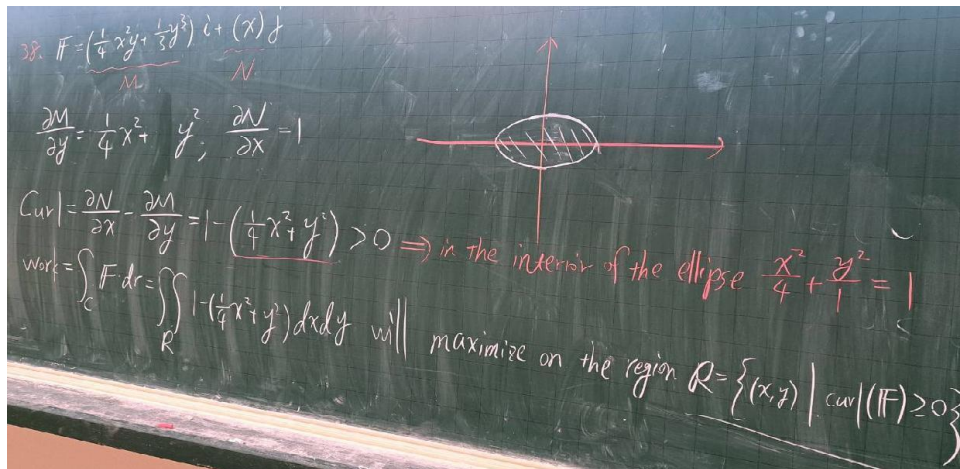 38. F = (1/4 x²y + 1/3 y³) i + (x) j
M N
∂M/∂y = 1/4 x² + y², ∂N/∂x = 1
Curl = ∂N/∂x - ∂M/∂y = 1 - (1/4 x² + y²) > 0 ⇒ in the interior of the ellipse x²/4 + y²/1 = 1
work = ∫_C F·dr = ∬_R 1 - (1/4 x² + y²) dxdy will maximize on the region R = {(x,y) | curl(F) ≥ 0}